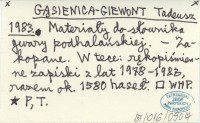 GĄSIENICA-GIEWONT Tadeusz
1983. Materiały do słownika
gwary podhalańskiej. - Za-
kopane. W tece: rękopiśmien-
ne zapiski z lat 1978-1983,
razem ok 1580 haseł. □ WHP.
★ P, T.
B/016/0504